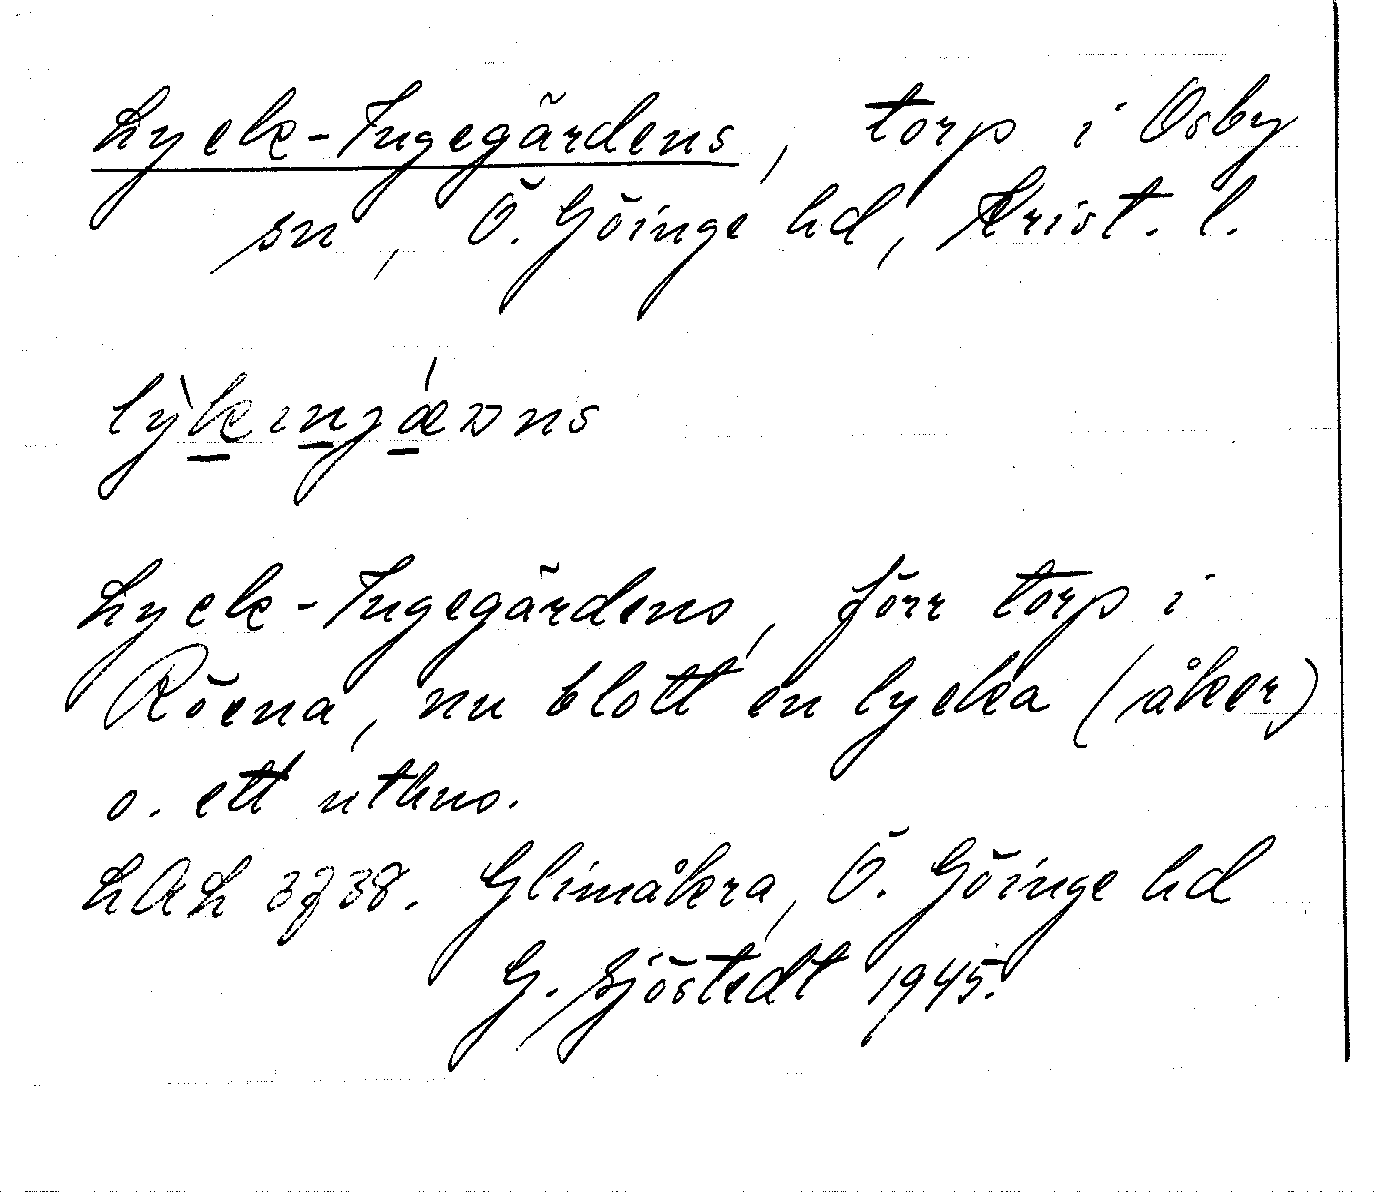 Lyck-Ingegärdens, torp i Osby
sn, Ö. Göinge hd, Krist. l.
Lyck-Ingegärdens, förr torp i
Röena, nu blott en lycka (åker)
o. ett uthus.
LAL 3738. Glimåkra, Ö. Göinge hd
G. Sjöstedt 1945.